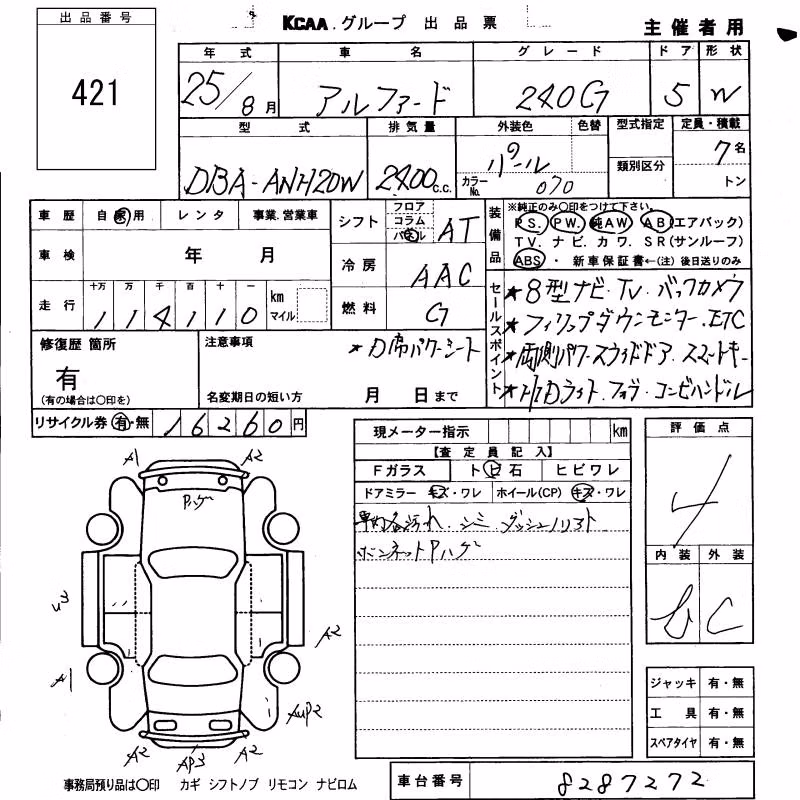 出品番号
421
KCAA.グループ 出品票
主催者用
年式 車名 グレード ドア 形状
25/8月 アルファード 240G 5 W
型式 排気量 外装色 色替 型式指定 定員・積載
類別区分
DBA-ANH20W 2400c.c. パール カラーNo. 070 7名
トン
車歴 自家用 レンタ 事業.営業車
シフト フロア コラム パネル AT
車検 年 月
冷房 AAC
走行 十万 万 千 百 十 一
114110 km マイル
燃料 G
装備品
※純正のみ○印をつけて下さい。
PS. PW. 純AW. AB(エアバック)
TV. ナビ. カワ. SR(サンルーフ)
ABS ・ 新車保証書←(注) 後日送りのみ
セールスポイント
★8型ナビ.TV.バックカメラ
★フィリップダウンモニター.ETC
★両側パワースライドドア.スマートキー
★HIDライト.フォグ.コンビハンドル
修復歴 箇所
有
(有の場合は○印を)
注意事項
★D席パワーシート
名変期日の短い方 月 日まで
リサイクル券 有・無 16260円
現メーター指示 km
【査定員記入】
Fガラス トビ石 ヒビワレ
ドアミラー キズ・ワレ ホイール(CP) キズ・ワレ
車内各汚れ.シミ ダッシュノリアト
ボンネットPハゲ
評価点
4
内装 外装
C
A1 A2
Pハゲ
W3
A2
A1
AUP2
A2 AP3 A2
ジャッキ 有・無
工具 有・無
スペアタイヤ 有・無
事務局預り品は○印 カギ シフトノブ リモコン ナビロム
車台番号 8287272